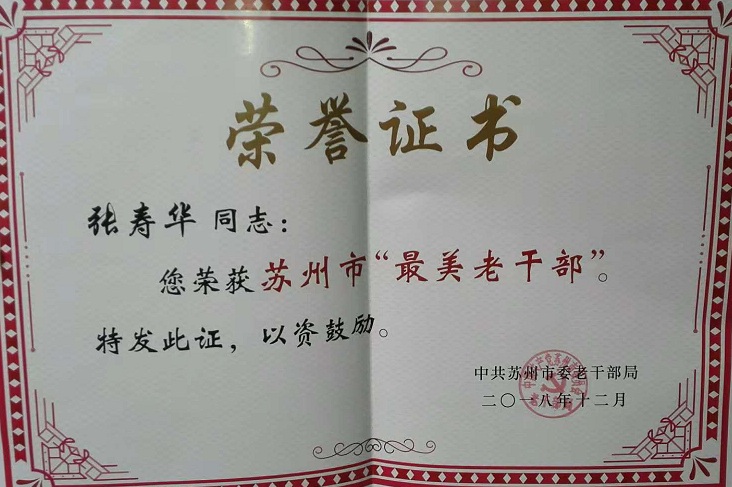 荣誉证书
张寿华 同志：
您荣获苏州市“最美老干部”。
特发此证，以资鼓励。
中共苏州市委老干部局
二〇一八年十二月